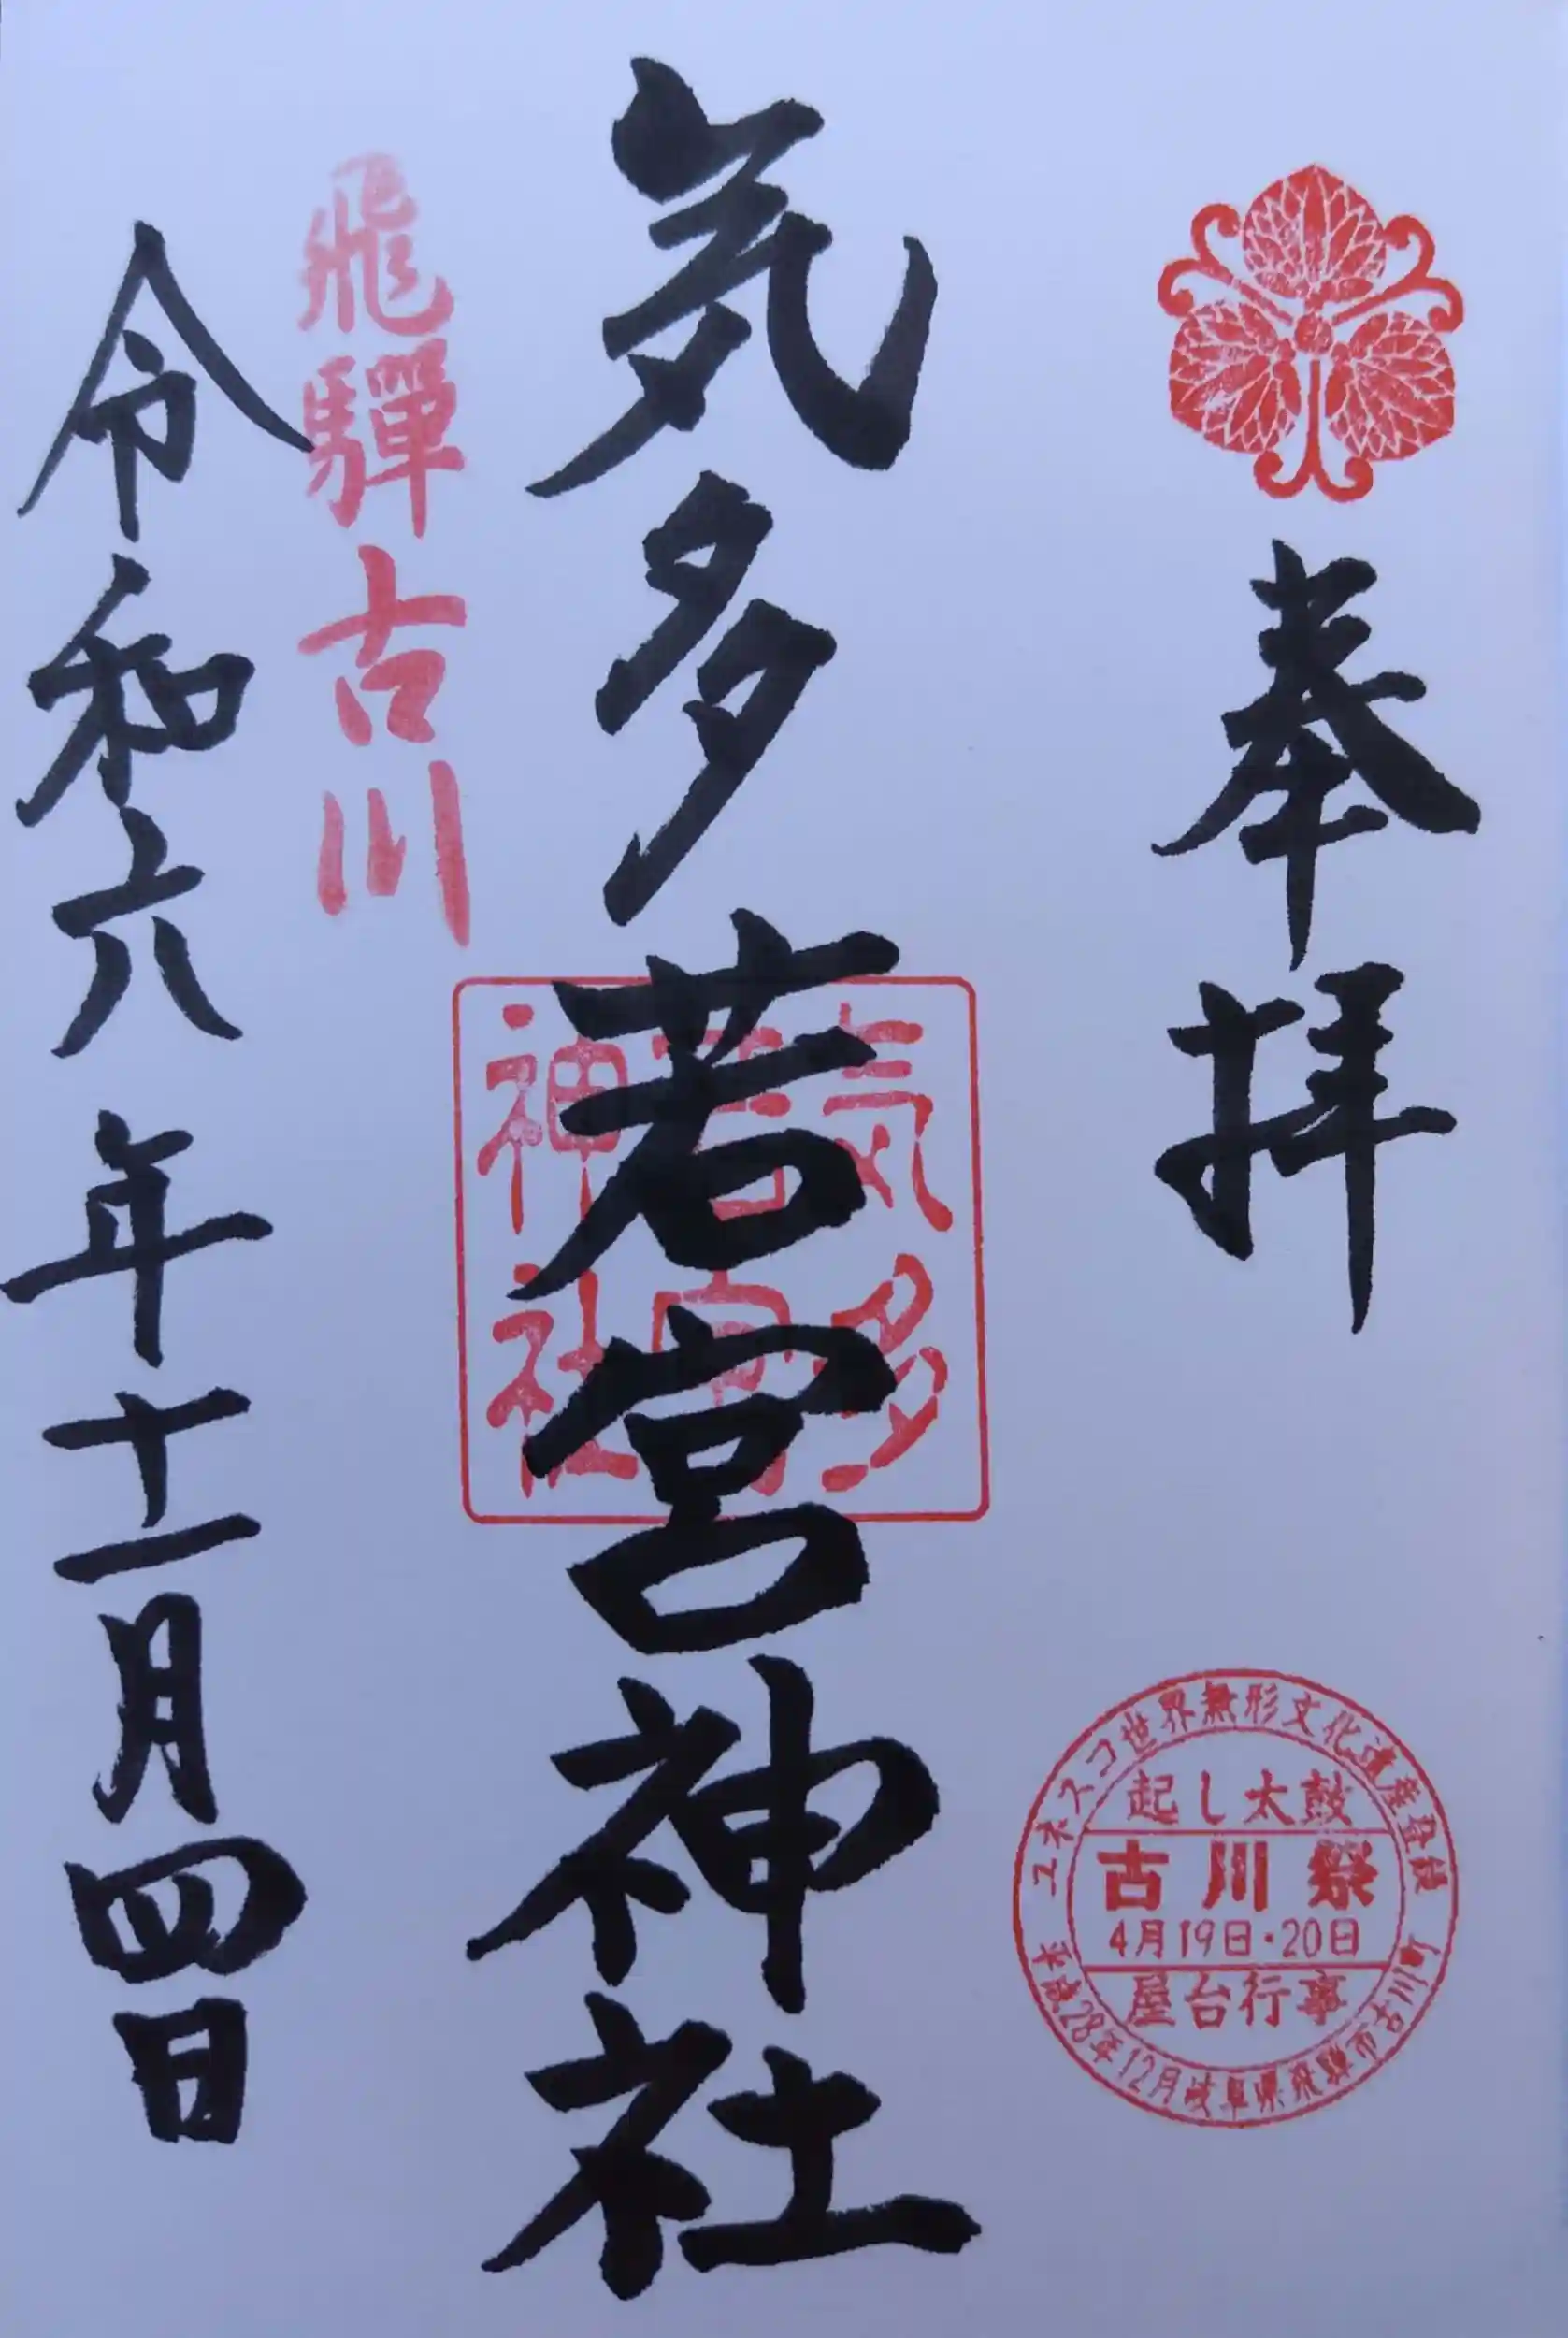 奉拝
ユネスコ世界無形文化遺産登録
起し太鼓
古川祭
4月19日・20日
屋台行事
28年12月岐阜県飛騨市古川町
気多若宮神社
気多
若宮
神社
飛驒古川
令和六年十一月四日